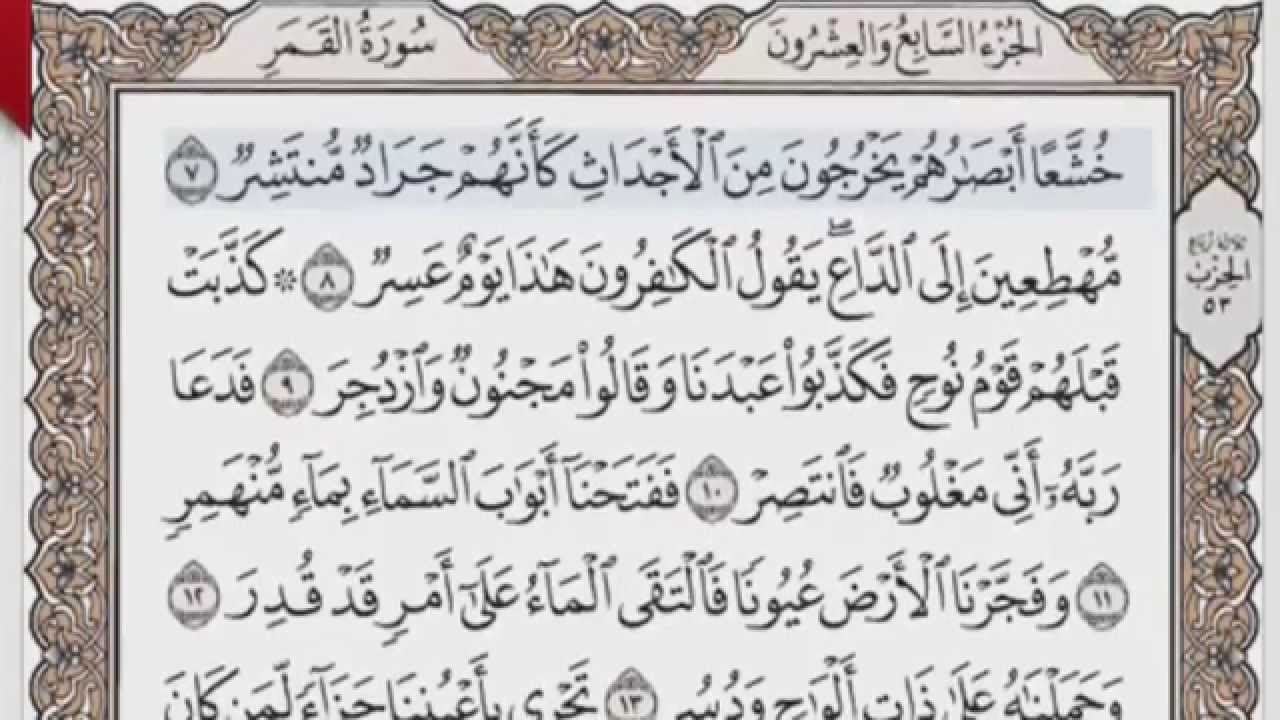 الجُزْءُ السَّابِعُ وَالعِشْرُونَ
سُورَةُ الْقَمَرِ
خُشَّعًا أَبْصَٰرُهُمْ يَخْرُجُونَ مِنَ ٱلْأَجْدَاثِ كَأَنَّهُمْ جَرَادٌ مُّنتَشِرٌ ٧
مُّهْطِعِينَ إِلَى ٱلدَّاعِ ۖ يَقُولُ ٱلْكَٰفِرُونَ هَٰذَا يَوْمٌ عَسِرٌ ٨ ۞ كَذَّبَتْ
قَبْلَهُمْ قَوْمُ نُوحٍ فَكَذَّبُوا۟ عَبْدَنَا وَقَالُوا۟ مَجْنُونٌ وَٱزْدُجِرَ ٩ فَدَعَا
رَبَّهُۥٓ أَنِّى مَغْلُوبٌ فَٱنتَصِرْ ١٠ فَفَتَحْنَآ أَبْوَٰبَ ٱلسَّمَآءِ بِمَآءٍ مُّنْهَمِرٍ
١١ وَفَجَّرْنَا ٱلْأَرْضَ عُيُونًا فَٱلْتَقَى ٱلْمَآءُ عَلَىٰٓ أَمْرٍ قَدْ قُدِرَ ١٢
وَحَمَلْنَٰهُ عَلَىٰ ذَاتِ أَلْوَٰحٍ وَدُسُرٍ ١٣ تَجْرِى بِأَعْيُنِنَا جَزَآءً لِّمَن كَانَ
ثلاثة أرباع
الحِزْب
٥٣